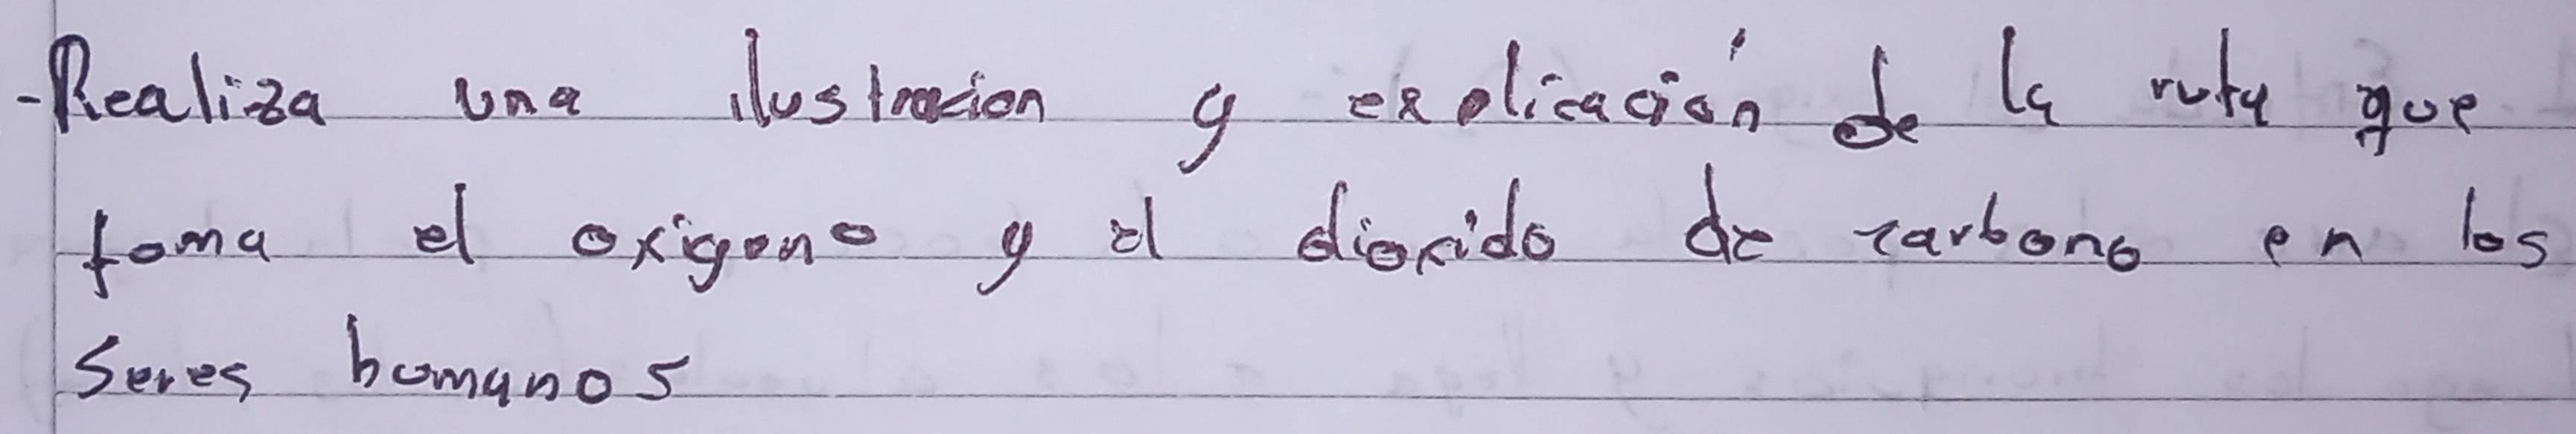 -Realiza una ilustracion y explicación de la ruta que
toma el oxigeno y el dioxido de carbono en los
seres humanos